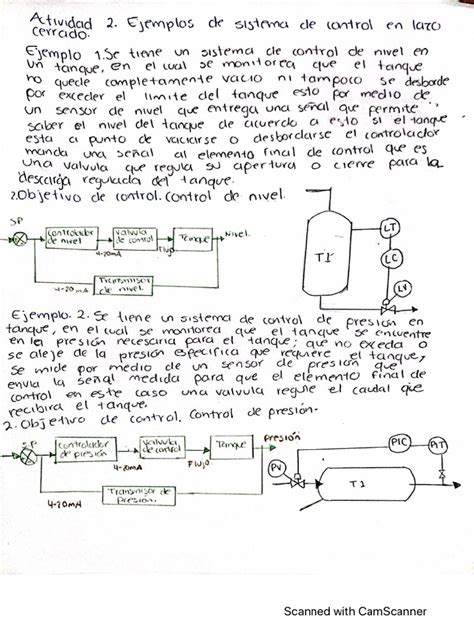 Actividad 2. Ejemplos de sistema de control en lazo
cerrado.
Ejemplo 1. Se tiene un sistema de control de nivel en
un tanque, en el cual se monitorea que el tanque
no quede completamente vacio ni tampoco se desborde
por exceder el limite del tanque esto por medio de
un sensor de nivel que entrega una señal que permite
saber el nivel del tanque de acuerdo a esto si el tanque
esta a punto de vaciarse o desbordarse el controlador
manda una señal al elemento final de control que es
una valvula que regula su apertura o cierre para la
descarga regulada del tanque.
2. Objetivo de control. Control de nivel.
SP
controlador
de nivel
valvula
de control
Tanque
Nivel
4-20mA
Flujo
Transmisor
de nivel
4-20mA
T1
LT
LC
LV
Ejemplo. 2. Se tiene un sistema de control de presion en
tanque, en el cual se monitorea que el tanque se encuentre
en la presion necesaria para el tanque; que no exceda o
se aleje de la presion especifica que requiere el tanque,
se mide por medio de un sensor de presion que
envia la señal medida para que el elemento final de
control en este caso una valvula regule el caudal que
recibira el tanque.
2. Objetivo de control. Control de presion.
SP
controlador
de presion
valvula
de control
Tanque
presion
4-20mA
Flujo
Transmisor de
presion.
4-20mA
PV
PIC
PIT
T1
Scanned with CamScanner